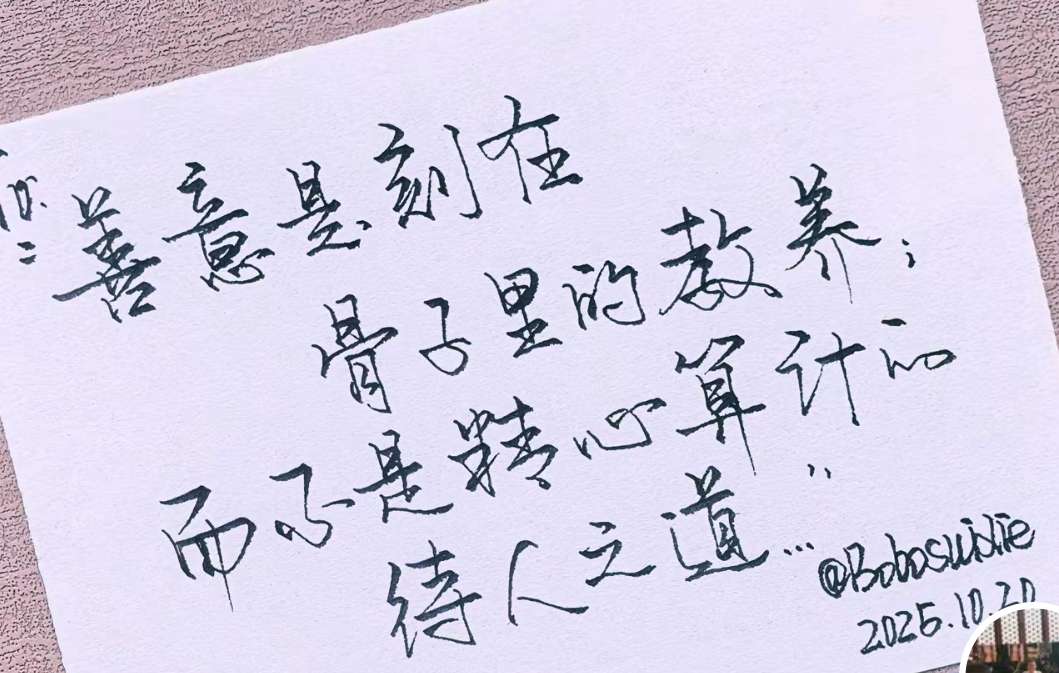 善意是刻在
骨子里的教养；
而不是精心算计的
待人之道…”
@Boboswixie
2025.10.20